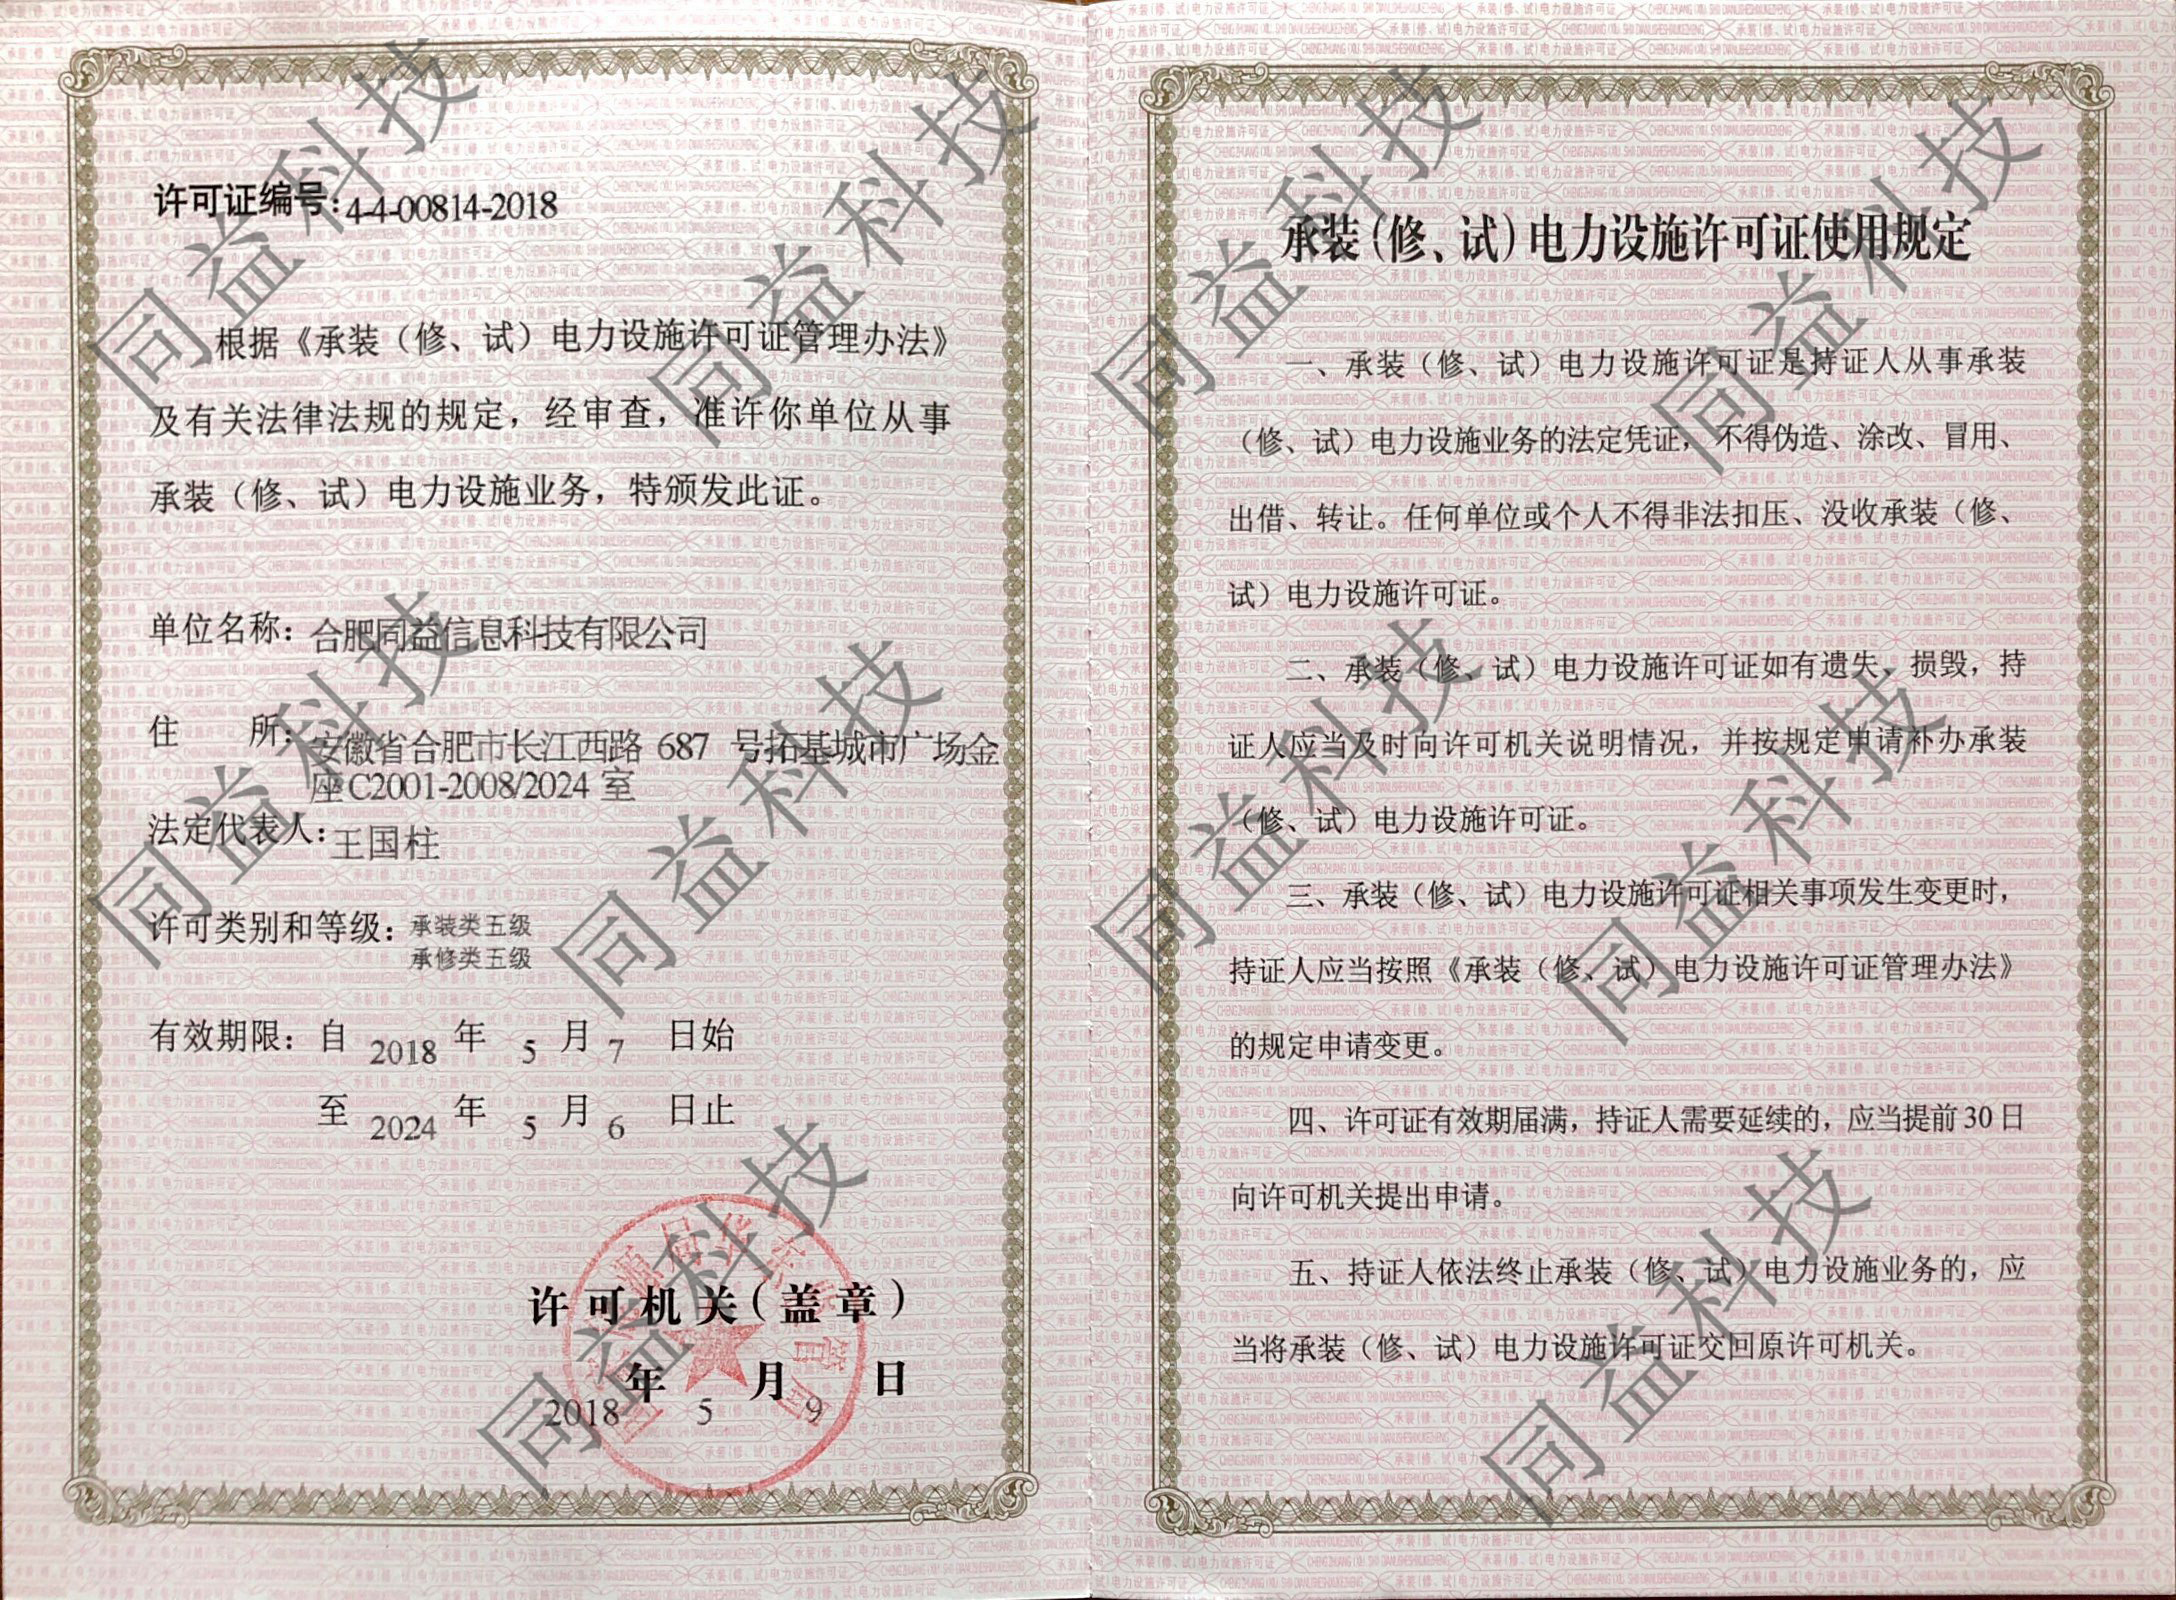 许可证编号:4-4-00814-2018
根据《承装（修、试）电力设施许可证管理办法》
及有关法律法规的规定，经审查，准许你单位从事
承装（修、试）电力设施业务，特颁发此证。
单位名称：合肥同益信息科技有限公司
住 所：安徽省合肥市长江西路 687 号拓基城市广场金
座C2001-2008/2024 室
法定代表人：王国柱
许可类别和等级：承装类五级
承修类五级
有效期限：自 2018 年 5 月 7 日始
至 2024 年 5 月 6 日止
许可机关(盖章)
2018 年 5 月 9 日
承装(修、试)电力设施许可证使用规定
一、承装（修、试）电力设施许可证是持证人从事承装
（修、试）电力设施业务的法定凭证，不得伪造、涂改、冒用、
出借、转让。任何单位或个人不得非法扣压、没收承装（修、
试）电力设施许可证。
二、承装（修、试）电力设施许可证如有遗失、损毁，持
证人应当及时向许可机关说明情况，并按规定申请补办承装
（修、试）电力设施许可证。
三、承装（修、试）电力设施许可证相关事项发生变更时，
持证人应当按照《承装（修、试）电力设施许可证管理办法》
的规定申请变更。
四、许可证有效期届满，持证人需要延续的，应当提前 30 日
向许可机关提出申请。
五、持证人依法终止承装（修、试）电力设施业务的，应
当将承装（修、试）电力设施许可证交回原许可机关。
同益科技
同益科技
同益科技
同益科技
同益科技
同益科技
同益科技
同益科技
同益科技
同益科技